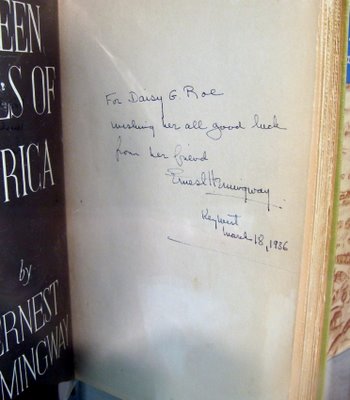 EEN
LS OF
RICA
by
ERNEST
MINGWAY
For Daisy G. Roe
wishing her all good luck
from her friend
Ernest Hemingway.
Key West
March 18, 1936